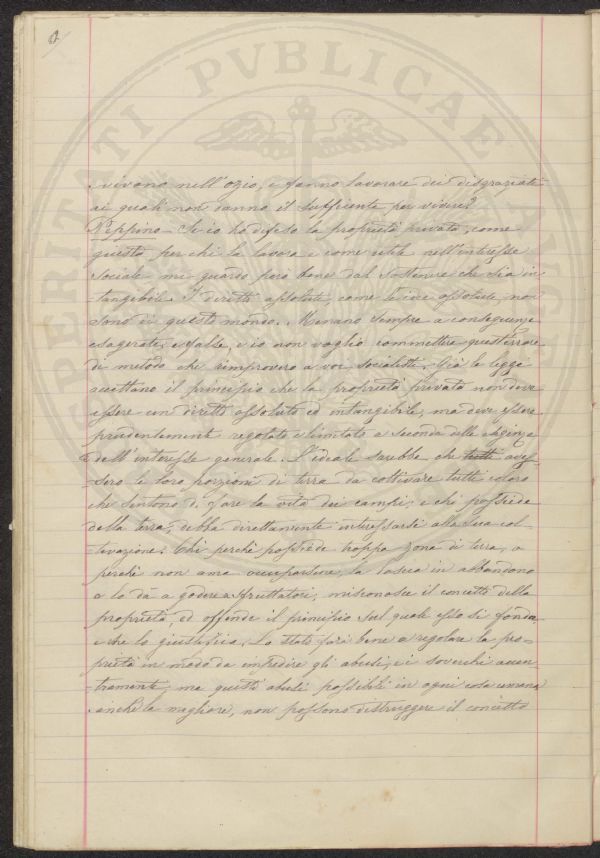 vivono nell'ozio, e fanno lavorare dei disgraziati
ai quali non danno il sufficiente per vivere?
Peppino - Se io ho difeso la proprietà privata, come
questa per chi la lavora e come utile nell'interesse
sociale mi guardo però bene dal sostenere che sia in
tangibile. I diritti assoluti, come le idee assolute, non
sono di questo mondo. Menano sempre a conseguenze
esagerate, e false, e io non voglio commettere quest'errore
di metodo che rimprovero a voi socialisti. Già le leggi
accettano il principio che la proprietà privata non deve
essere un diritto assoluto ed intangibile, ma deve essere
prudentemente regolato e limitato a seconda delle esigenze
dell'interesse generale. L'ideale sarebbe che tutti aves-
sero la loro porzione di terra da coltivare tutti coloro
che sentono di fare la vita dei campi, e chi possiede
della terra, debba direttamente interessarsi alla sua col-
tivazione. Chi perché possiede troppa zona di terra, o
perché non ama occuparsene, la lascia in abbandono
o la dà a godere a sfruttatori, misconosce il concetto della
proprietà, ed offende il principio sul quale esso si fonda,
e che lo giustifica. Lo stato farà bene a regolare la pro-
prietà in modo da impedire gli abusi, e i soverchi accen-
tramenti, ma questi abusi possibili in ogni cosa umana
anche la migliore, non possono distruggere il concetto
PERITATI PVBLICAE